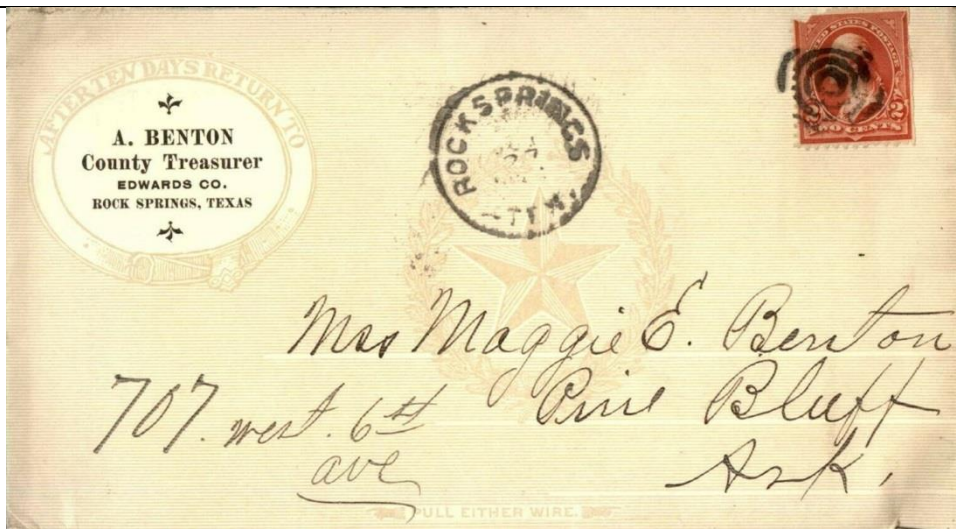 AFTER TEN DAYS RETURN TO
A. BENTON
County Treasurer
EDWARDS CO.
ROCK SPRINGS, TEXAS
ROCKSPRINGS
TEX.
UNITED STATES POSTAGE
2 2
TWO CENTS
Mrs Maggie E. Benton
Pine Bluff
Ark.
707. west. 6th
ave
PULL EITHER WIRE.